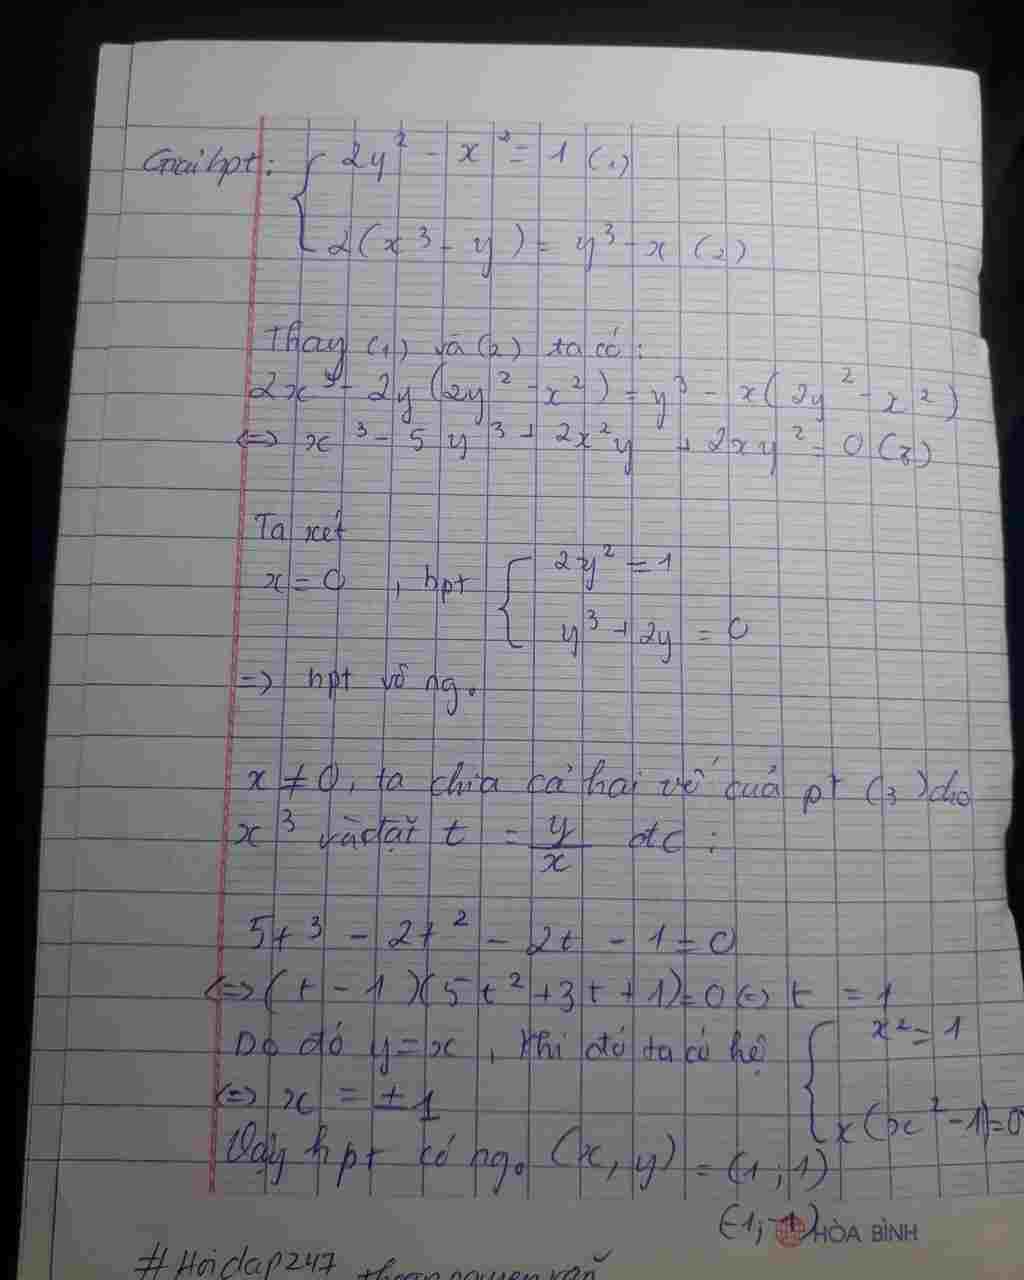 Giải hpt: { 2y² - x² = 1 (1)
2(x³ - y) = y³ - x (2)
Thay (1) và (2) ta có:
2x³ - 2y(2y² - x²) = y³ - x(2y² - x²)
<=> x³ - 5y³ + 2x²y + 2xy² = 0 (3)
Ta xét
x = 0, hpt { 2y² = 1
y³ + 2y = 0
=> hpt vô ng.
x ≠ 0, ta chia cả hai vế của pt (3) cho
x³ và đặt t = y/x đc:
5t³ - 2t² - 2t - 1 = 0
<=> (t - 1)(5t² + 3t + 1) = 0 <=> t = 1
Do đó y = x, khi đó ta có hệ { x² = 1
x(x² - 1) = 0
<=> x = ± 1
Vậy hpt có ng. (x, y) = (1; 1)
(-1; -1)
HÒA BÌNH
#Hoidap247